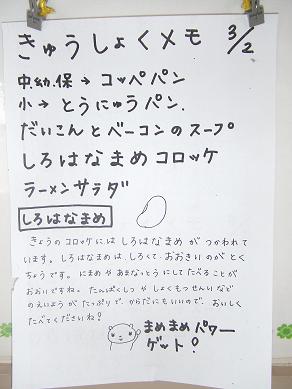 きゅうしょくメモ 3/2
中.幼.保→コッペパン
小→とうにゅうパン.
だいこんとベーコンのスープ
しろはなまめコロッケ
ラーメンサラダ
しろはなまめ
きょうのコロッケには しろはなまめ が つかわれて
います。しろはなまめは、しろくて、おおきい のが とく
ちょうです。にまめ や あまなっとう にして たべることが
おおいですね。たんぱくしつ や しょくもつせんい など
の えいよう が たっぷりで、からだにもいいので、おいしく
たべてくださいね!
まめまめパワー
ゲット!